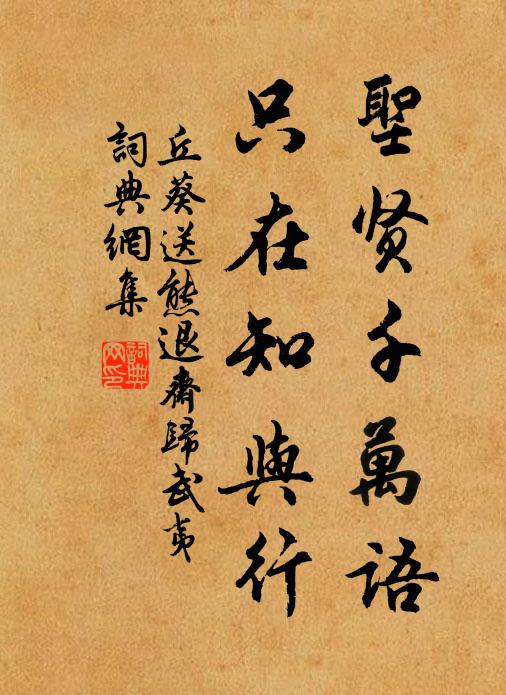 聖贤千萬語
只在知與行
丘葵送熊退齋歸武夷
詞典網集
詞典網印